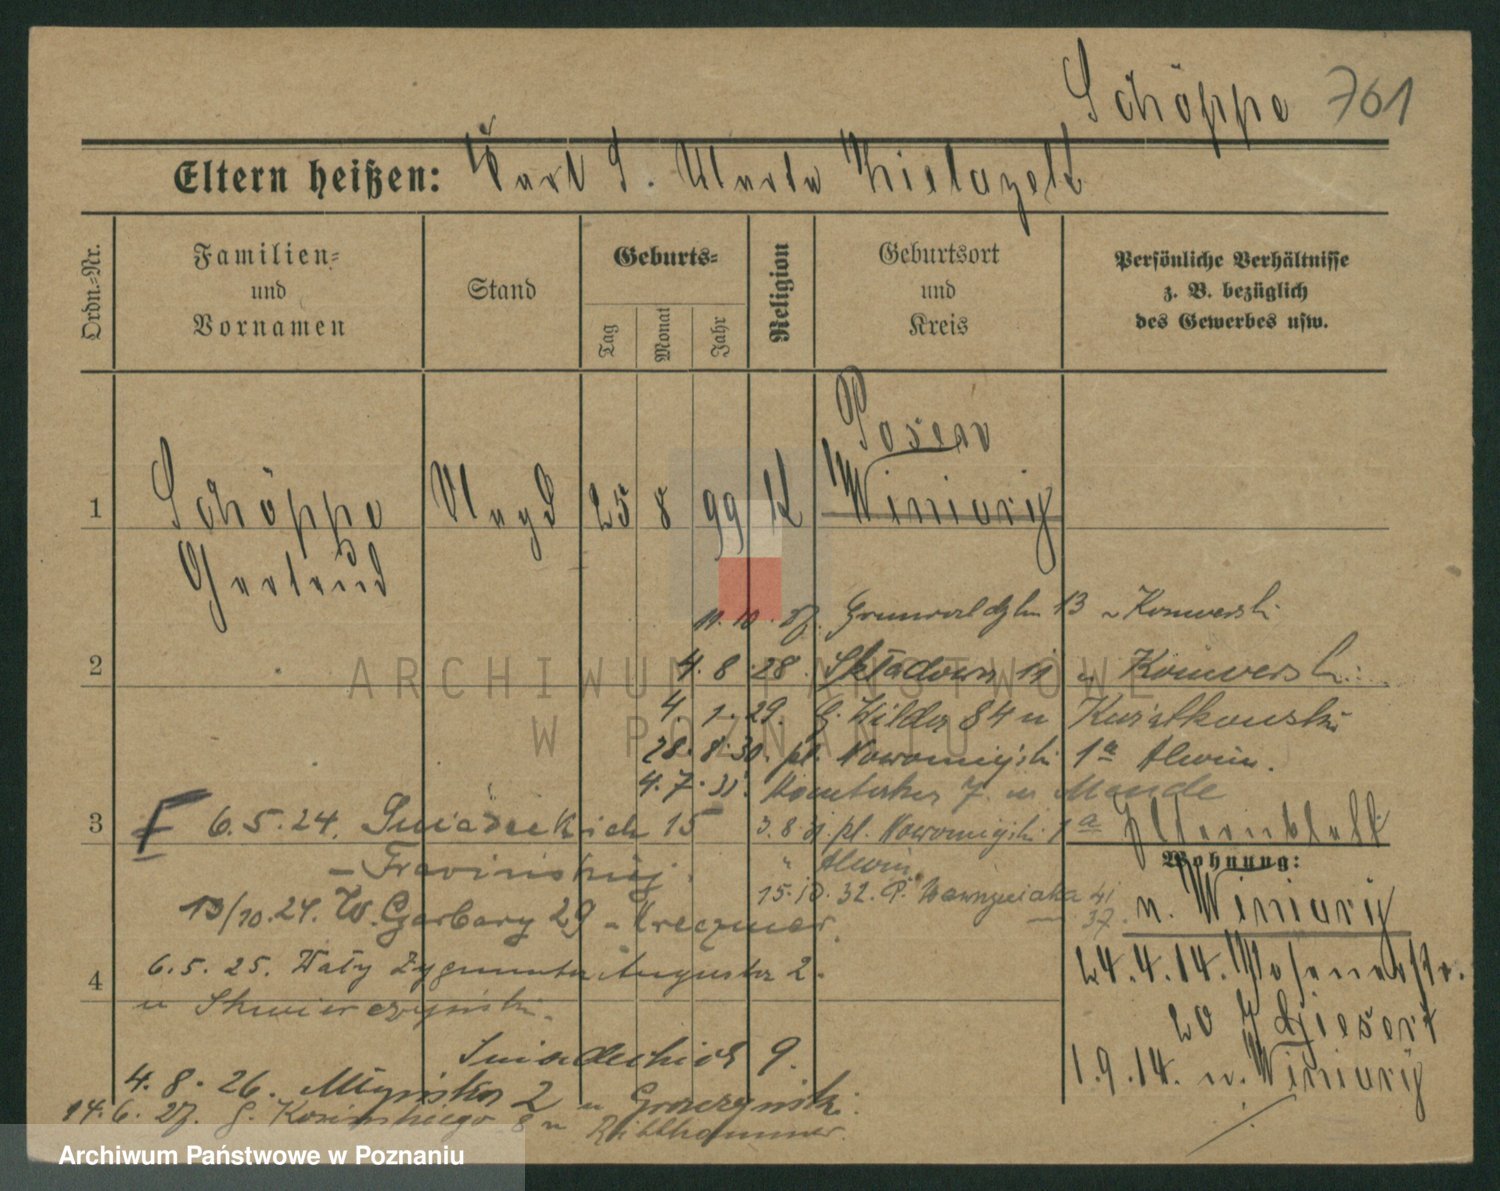 Schöppe 761
Eltern heißen: Karl S. Marta
Ordn.=Nr.
Familien=
und
Vornamen
Stand
Geburts=
Tag
Monat
Jahr
Religion
Geburtsort
und
Kreis
Persönliche Verhältnisse
z. B. bezüglich
des Gewerbes usw.
Posen
1 Schöppe Magd 25 8 99 K Winiary
Gertrud
11.10.27. 13
2
4.8.28. Składowa 11 u
4.1.29. G. Wilda 84 u Kwiatkowski
28.8.30. pl. Nowomiejski 1a Alwin.
4.7.31. 7. u
3
6.5.24. Śniadeckich 15
3.8.31 pl. Nowomiejski 1a
Alwin
Elternblatt
Wohnung:
15.10.32. P. Wawrzyniaka 41
37.
n. Winiary
13/10.24. W. Garbary 29 u Kreczmer.
24.4.14. Posenerstr.
4
6.5.25. Wały Zygmunta Augusta 2.
u Skwierczyński.
20
Śniadeckich 9.
1.9.14. n. Winiary
4.8.26. Młyńska 2 u
14.6.27. G. Kosińskiego 8 u
ARCHIWUM PAŃSTWOWE
W POZNANIU
Archiwum Państwowe w Poznaniu